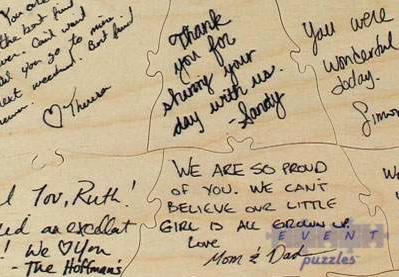 You are
the best friend
ever. Can't wait
next weekend. Best friend
♡ Theresa
Thank
you for
sharing your
day with us.
-Sandy
You were
wonderful
today.
Simon
You, Ruth!
an excellent
! We ♡ You
- The Hoffman's
WE ARE SO PROUD
OF YOU. WE CAN'T
BELIEVE OUR LITTLE
GIRL IS ALL GROWN UP.
LOVE
Mom & Dad
EVENT
puzzles